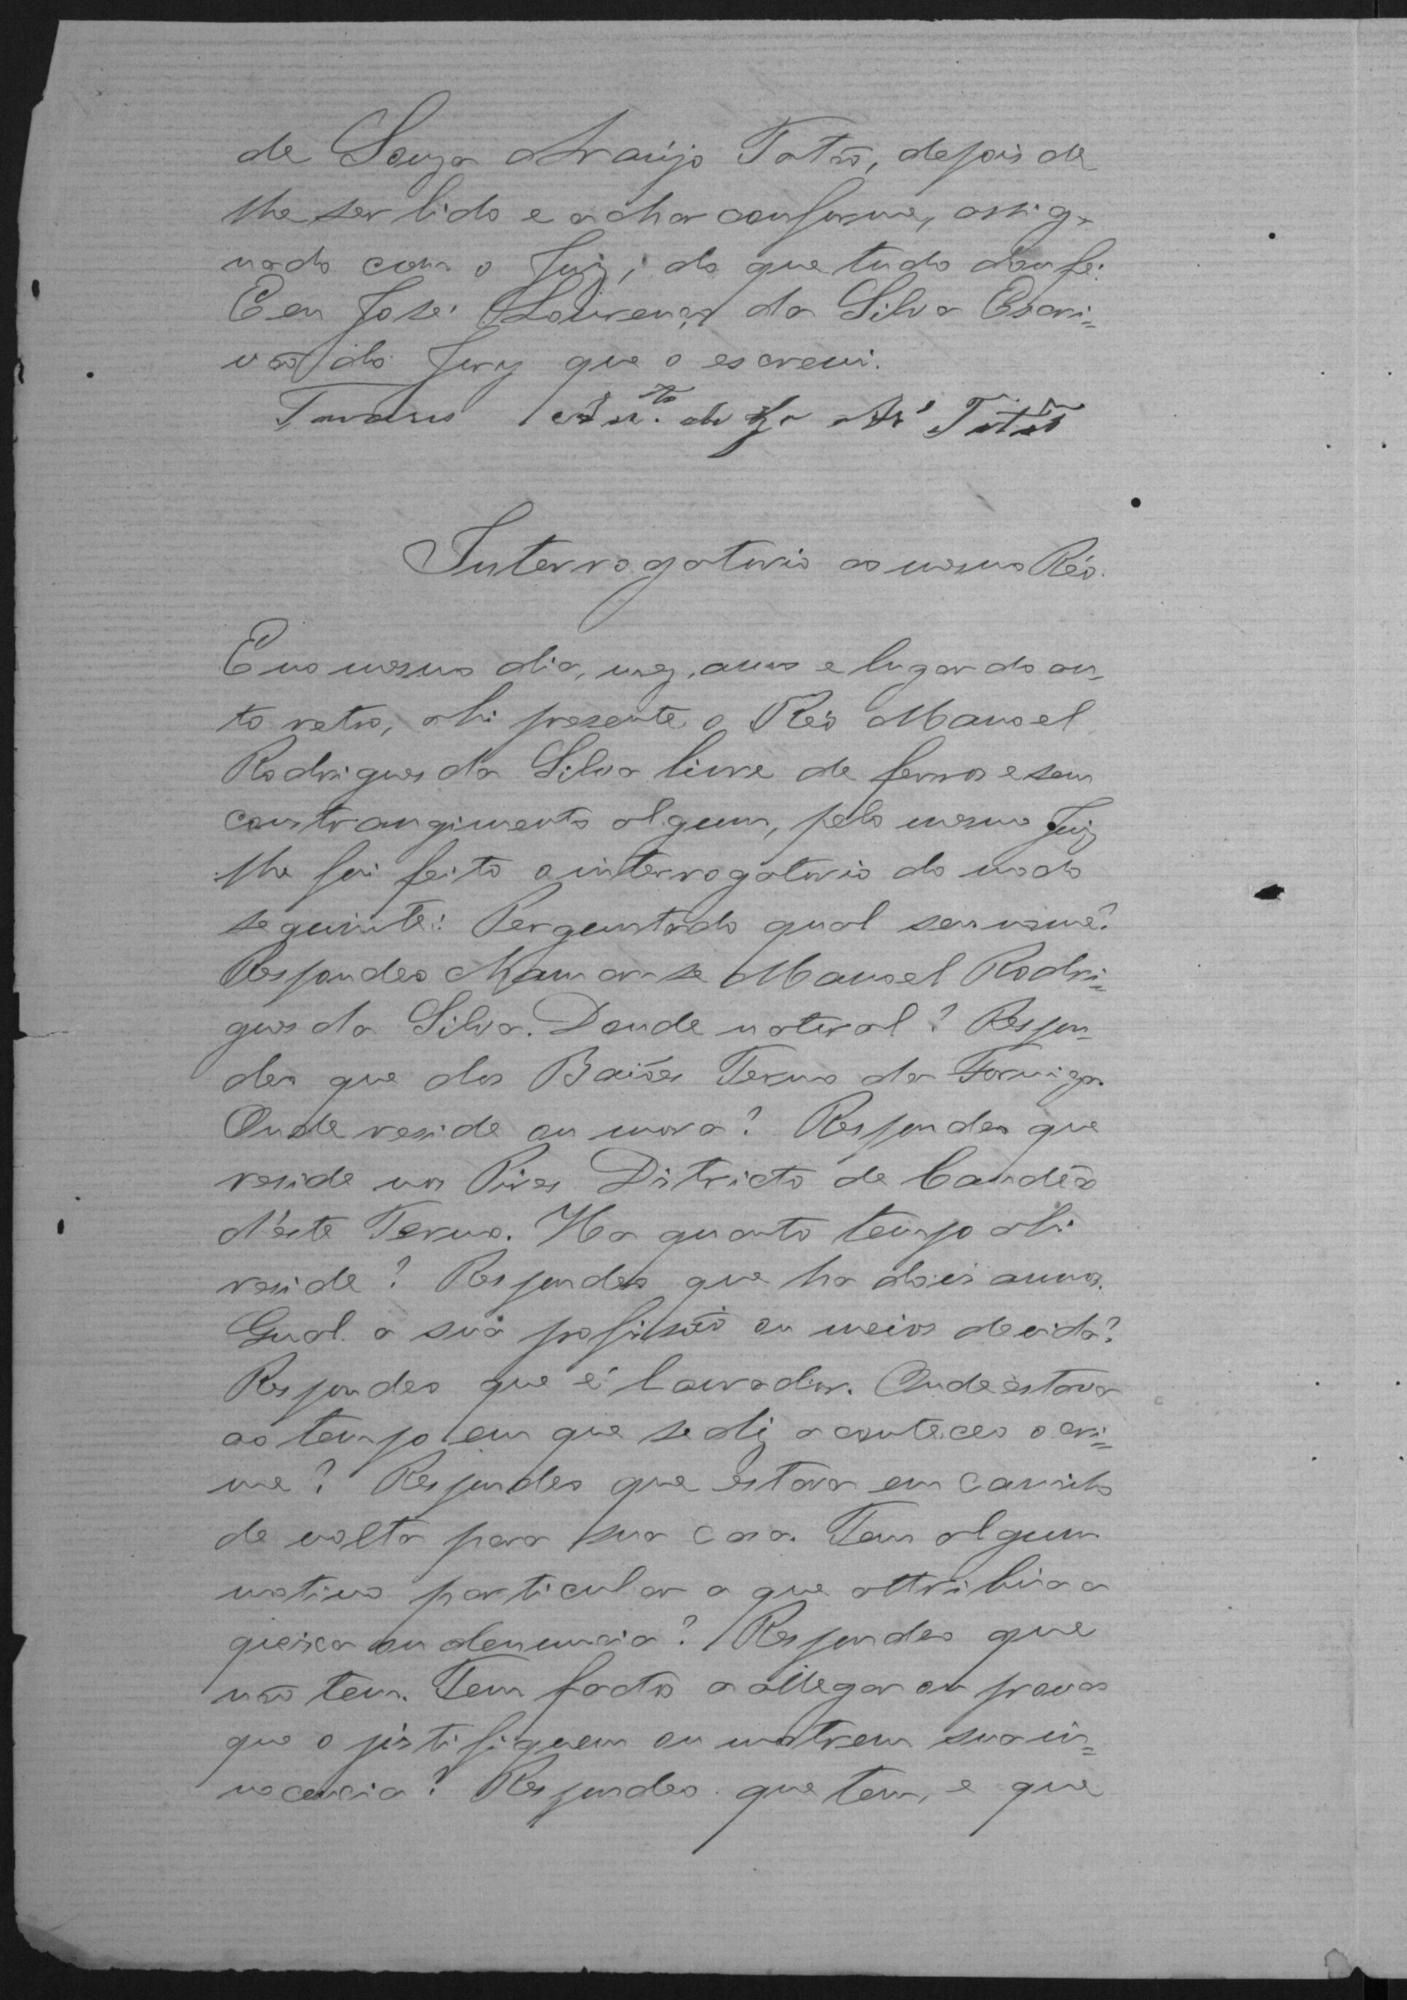 de Souza Araujo Tatão, depois de
lhe ser lido e achar conforme, assig-
nado com o Juiz; do que tudo dou fé.
E eu José Lourenço da Silva Escri=
vão do Jury que o escrevi.
Tavares Antº. de Sza Arº Tatão
Interrogatorio ao mesmo Réo.
E no mesmo dia, mez, anno e lugar do au-
to retro, ahi presente o Réo Manoel
Rodrigues da Silva livre de ferros e sem
constrangimento algum, pelo mesmo Juiz
lhe foi feito o interrogatorio do modo
seguinte: Perguntado qual seu nome?
Respondeo chamar-se Manoel Rodri=
gues da Silva. Donde natural? Respon-
deu que dos Baiões Termo da Formiga.
Onde reside ou mora? Respondeo que
reside nos Pires Districto de Candêas
d'este Termo. Ha quanto tempo ahi
reside? Respondeo que ha dois annos.
Qual a sua profissão ou meios de vida?
Respondeo que é lavrador. Onde estava
ao tempo em que se diz aconteceo o cri=
me? Respondeo que estava em caminho
de volta para sua casa. Tem algum
motivo particular a que attribua a
queixa ou denuncia? Respondeo que
não tem. Tem factos a allegar ou provas
que o justifiquem ou mostrem sua in=
nocencia? Respondeo que tem, e que